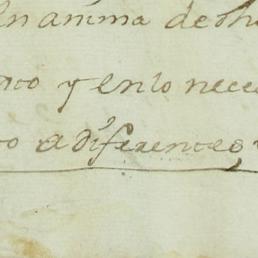 en anima de
y en lo nece
o a diferentes,